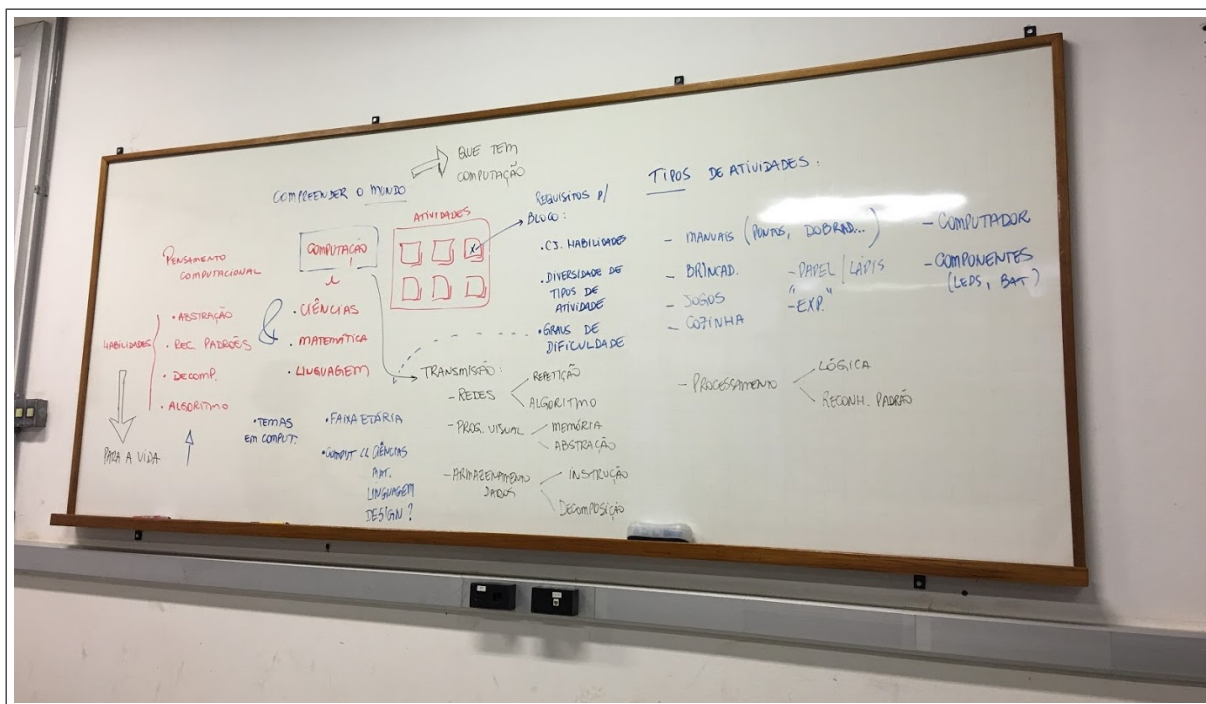 QUE TEM
COMPUTAÇÃO
COMPREENDER O MUNDO
PENSAMENTO
COMPUTACIONAL
HABILIDADES
• ABSTRAÇÃO
• REC. PADRÕES
• DECOMP.
• ALGORITMO
PARA A VIDA
COMPUTAÇÃO
&
• CIÊNCIAS
• MATEMÁTICA
• LINGUAGEM
• TEMAS
EM COMPUT.
• FAIXA ETÁRIA
• COMPUT CIÊNCIAS
MAT.
LINGUAGEM
DESIGN?
ATIVIDADES
X
REQUISITOS P/
BLOCO:
• CJ. HABILIDADES
• DIVERSIDADE DE
TIPOS DE
ATIVIDADE
• GRAUS DE
DIFICULDADE
TRANSMISSÃO:
- REDES
REPETIÇÃO
ALGORITMO
- PROG. VISUAL
MEMÓRIA
ABSTRAÇÃO
- ARMAZENAMENTO
DADOS
INSTRUÇÃO
DECOMPOSIÇÃO
TIPOS DE ATIVIDADES:
- MANUAIS (PONTOS, DOBRAD...)
- BRINCAD.
- JOGOS
- COZINHA
- PAPEL/LÁPIS
- "EXP."
- COMPUTADOR
- COMPONENTES
(LEDS, BAT)
- PROCESSAMENTO
LÓGICA
RECONH. PADRÃO